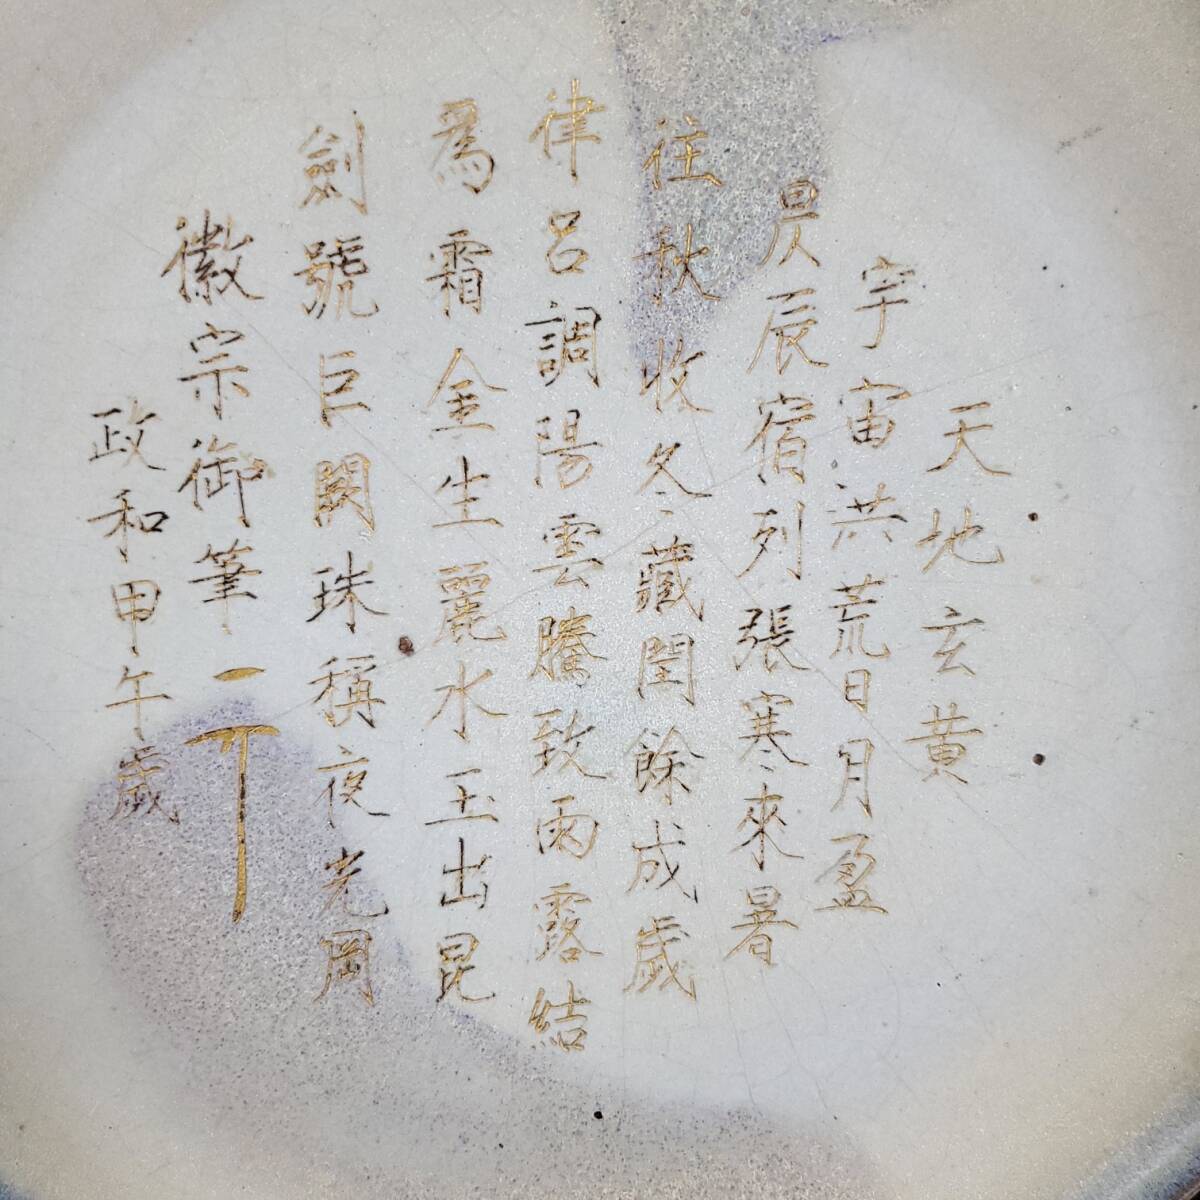 天地玄黄
宇宙洪荒日月盈
昃辰宿列張寒來暑
往秋收冬藏閏餘成歲
律呂調陽雲騰致雨露結
爲霜金生麗水玉出昆
劍號巨闕珠稱夜光岡
徽宗御筆一丅
政和甲午歲